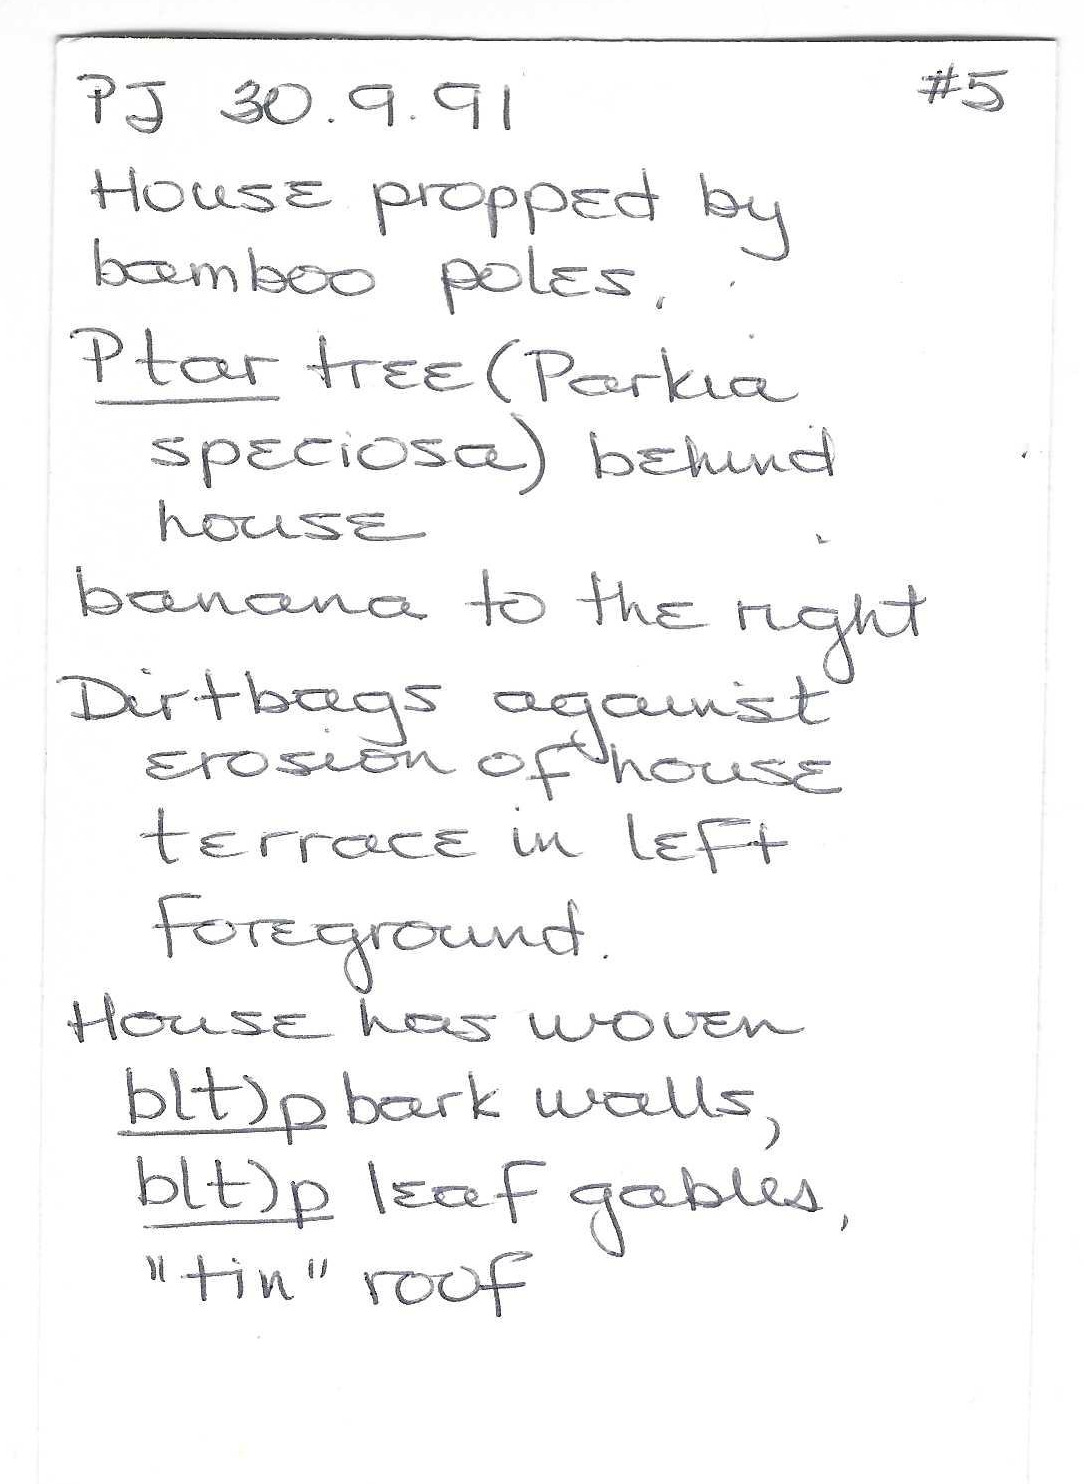 PJ 30.9.91 #5
House propped by
bamboo poles.
Ptar tree (Parkia
speciosa) behind
house
banana to the right
Dirtbags against
erosion of house
terrace in left
foreground.
House has woven
blt)p bark walls,
blt)p leaf gables,
"tin" roof